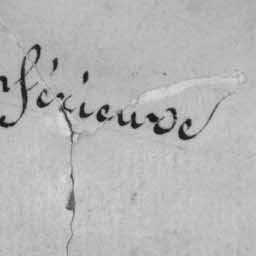 férieure